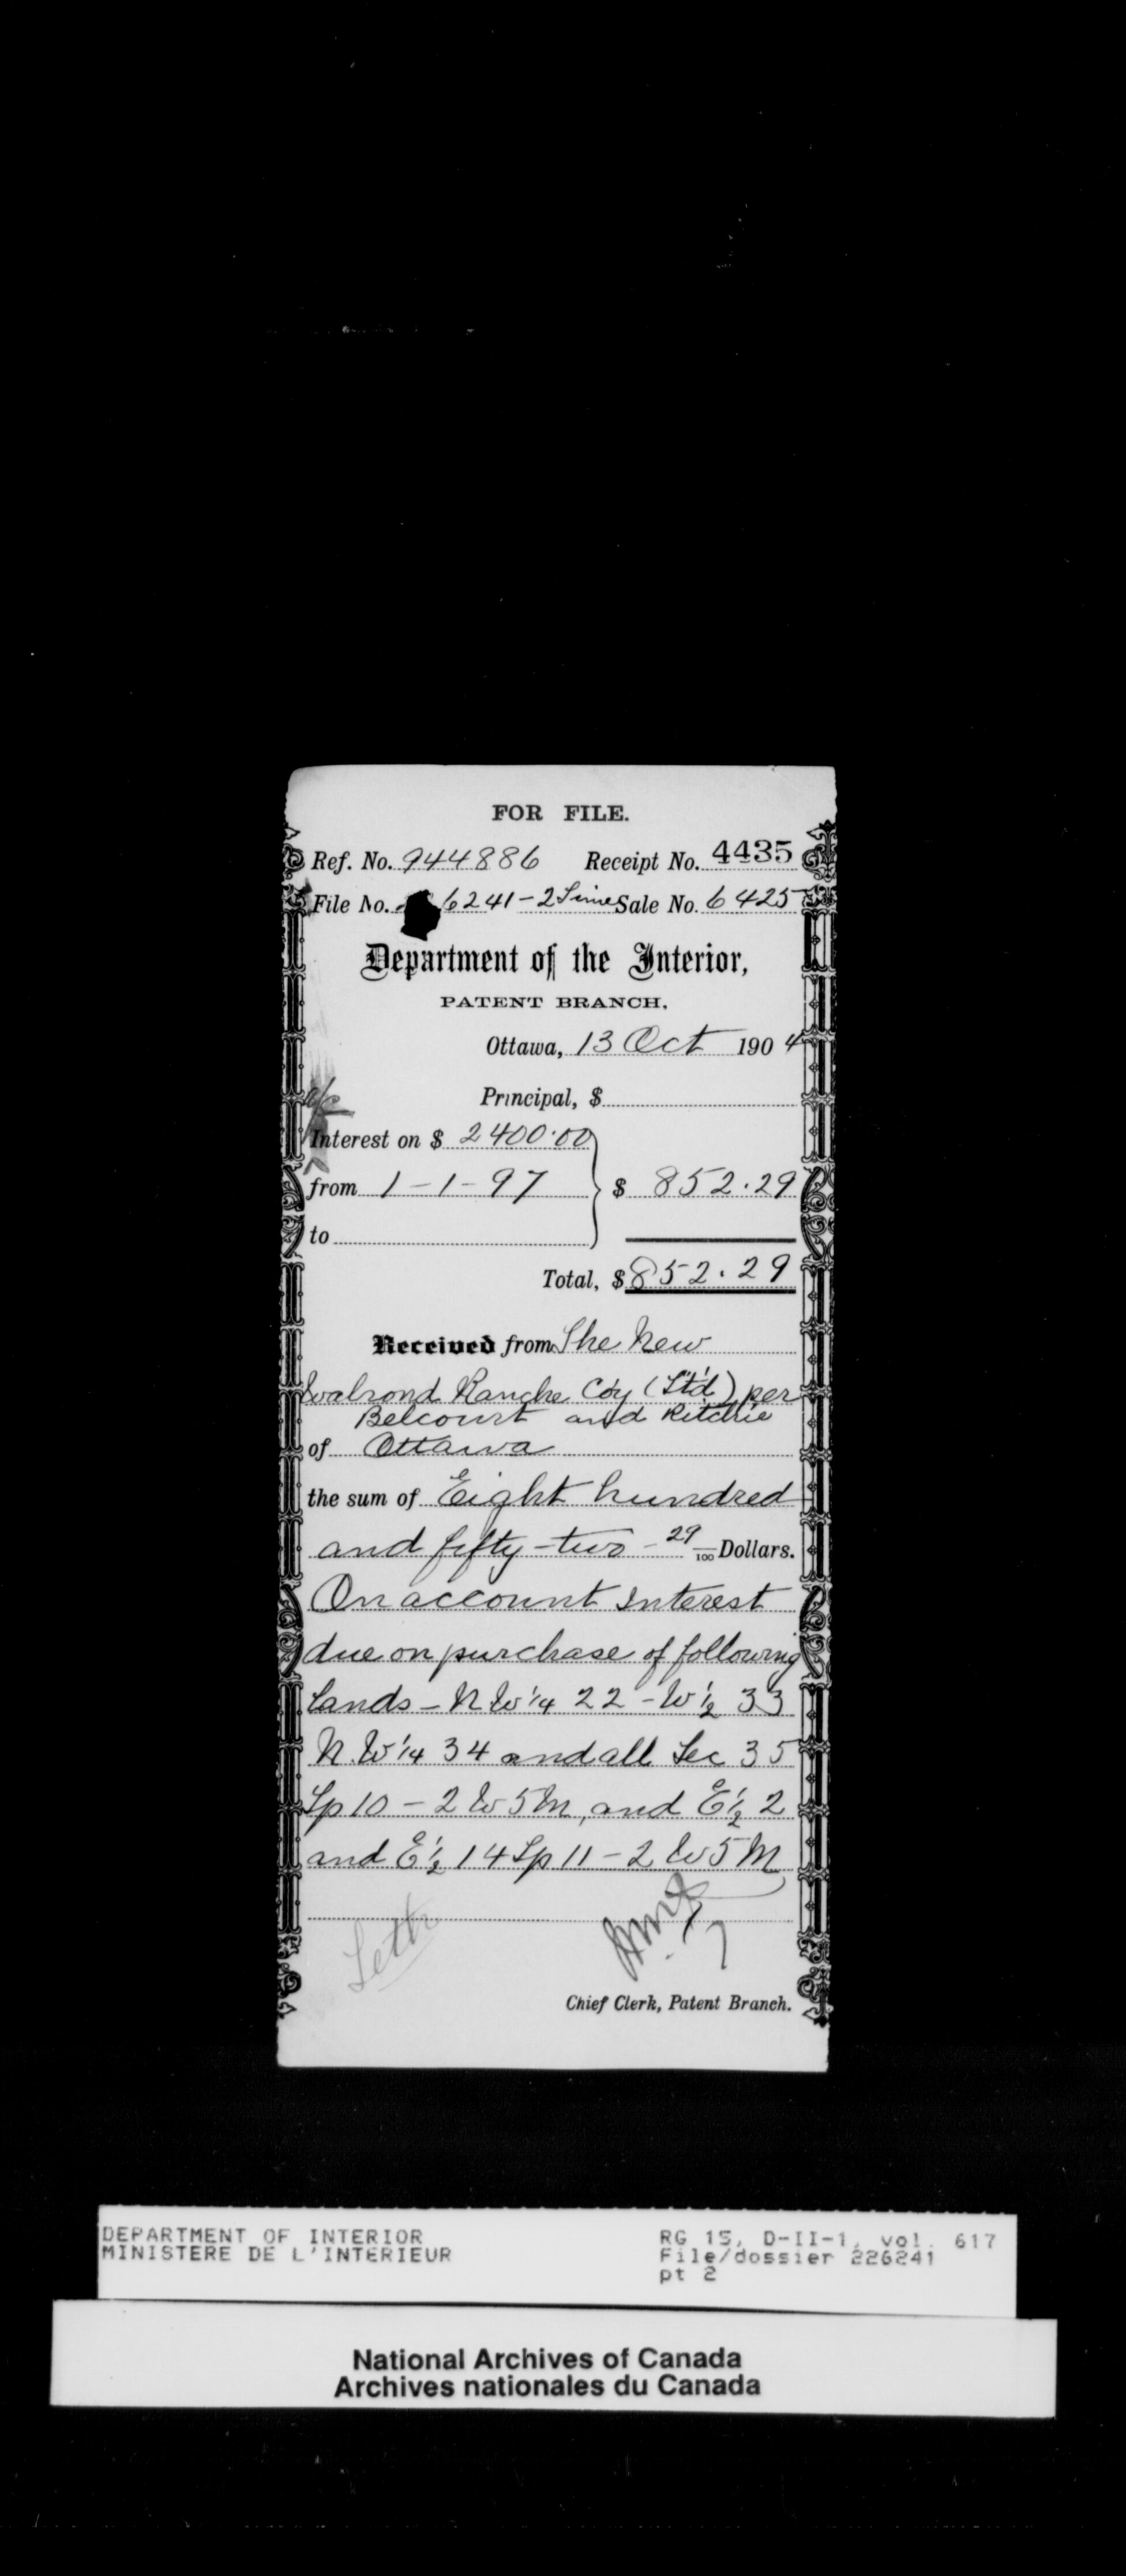 FOR FILE.
Ref. No. 944886 Receipt No. 4435
File No. 6241-2 Time Sale No. 6425
Department of the Interior,
PATENT BRANCH,
Ottawa, 13 Oct 1904
Principal, $
a/c
Interest on $ 2400.00
from 1-1-97 $ 852.29
to
Total, $ 852.29
Received from The New
Walrond Ranche Coy (Ltd) per
Belcourt and Ritchie
of Ottawa
the sum of Eight hundred
and fifty-two - 29/100 Dollars.
On account Interest
due on purchase of following
lands - N W 1/4 22 - W 1/2 33
N. W 1/4 34 and all Sec 35
Tp 10 - 2 W 5 M, and E 1/2 2
and E 1/2 14 Tp 11 - 2 W 5 M
Chief Clerk, Patent Branch.
DEPARTMENT OF INTERIOR RG 15, D-II-1, vol. 617
MINISTERE DE L'INTERIEUR File/dossier 226241
pt 2
National Archives of Canada
Archives nationales du Canada